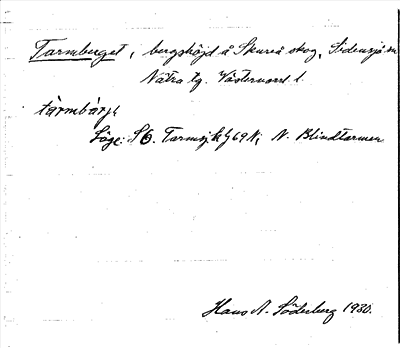 Tarmberget, bergshöjd å Skureå skog, Sidensjö sn
Nätra tg. Västernorrl. l.
tàrmbárjɛ
Läge: SO. Tarmsjö N, N. Blindtarmen
Hans A. Söderberg 1930.